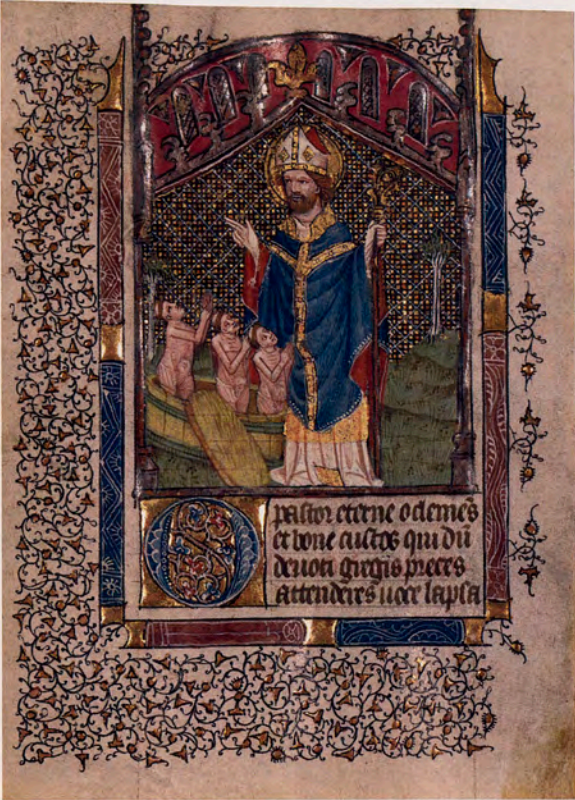 O pastor eterne o clemẽs
et bone custos qui dũ
devoti gregis preces
attenderes voce lapsa